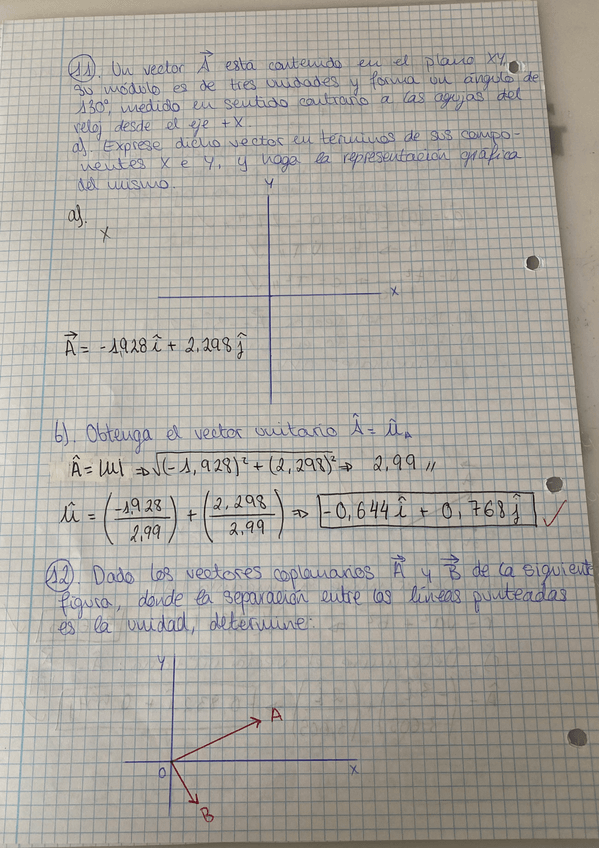 11). Un vector A⃗ está contenido en el plano XY,
su módulo es de tres unidades y forma un ángulo de
130°, medido en sentido contrario a las agujas del
reloj desde el eje +X.
a). Exprese dicho vector en términos de sus compo-
nentes X e Y, y haga la representación gráfica
del mismo.
Y
a).
X
X
A⃗ = -1,928 î + 2,298 ĵ
b). Obtenga el vector unitario Â = û_A
Â = |u| ⇒ √(-1,928)² + (2,298)² ⇒ 2,99 //
û = (-1,928/2,99) + (2,298/2,99) ⇒ -0,644 î + 0,768 ĵ ✓
12). Dado los vectores coplanarios A⃗ y B⃗ de la siguiente
figura, donde la separación entre las líneas punteadas
es la unidad, determine:
Y
A
O
X
B